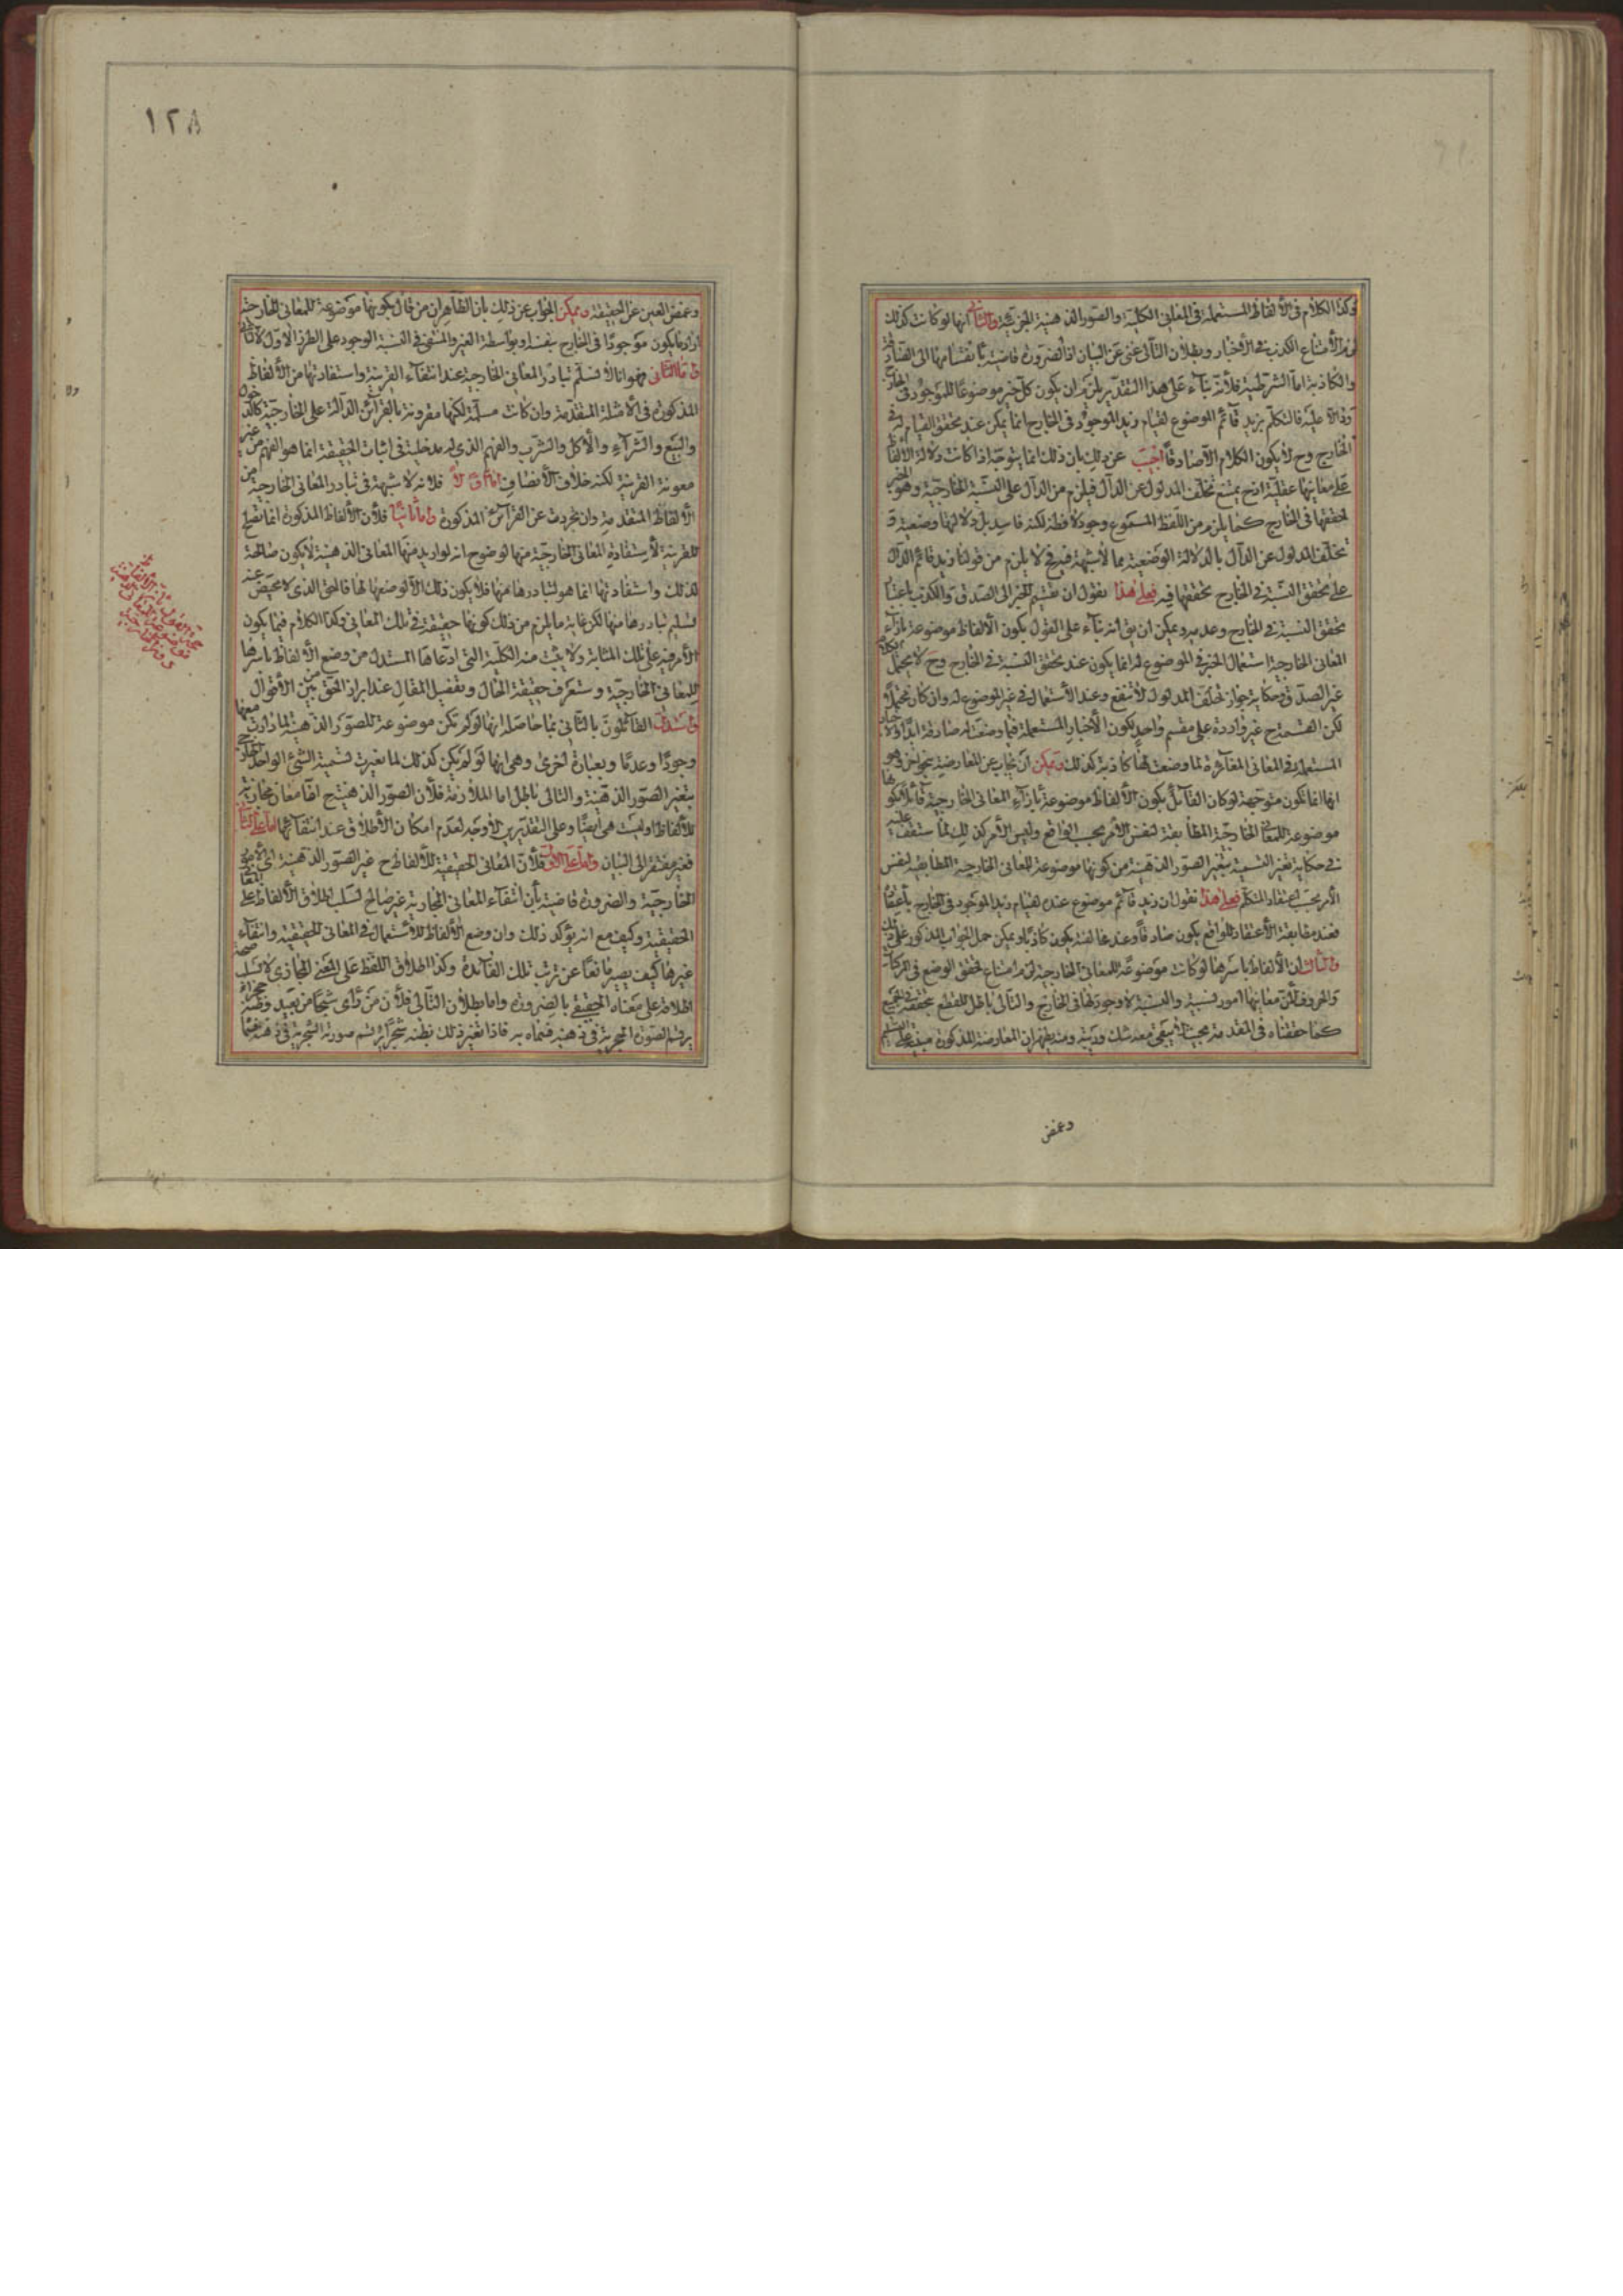 وكذا الكلام فى الألفاظ المستعملة فى المعانى الكلية والصور الذهنية الجزئية والثانى انها لو كانت كذلك
لزم الأمتناع الكذب فى الأخبار وبطلان التالى غنى عن البيان اذ الضرورة قاضية بانقسامها الى الصادقة
والكاذبة اما الشرطية فلأنه بناء على هذا التقدير يلزم ان يكون كل خبر موضوعا للموجود فى الخارج
ودالا عليه فالتكلم بزيد قائم الموضوع لقيام زيد الموجود فى الخارج انما يمكن عند تحقق القيام له فى
الخارج وح لا يكون الكلام الا صادقا اجيب عن ذلك بان ذلك انما يتوجه اذا كانت دلالة الألفاظ
على معانيها عقلية اذ ح يمتنع تخلف المدلول عن الدال فيلزم من الدال على النسبة الخارجية وهو الخبر
تحققها فى الخارج كما يلزم من اللفظ المسموع وجود لافظه لكنه فاسد بل دلالتها وضعية و
تخلف المدلول عن الدال بالدلالة الوضعية مما لا شبهة فيه فح لا يلزم من قولنا زيد قائم الدال
على تحقق النسبة فى الخارج تحققها فيه فعلى هذا نقول ان تقسيم الخبر الى الصدق والكذب باعتبار
تحقق النسبة فى الخارج وعدمه ويمكن ان يق انه بناء على القول بكون الألفاظ موضوعة بازاء
المعانى الخارجية استعمال الخبر فى الموضوع له انما يكون عند تحقق النسبة فى الخارج وح لا يحتمل الكلام
غير الصدق وحكاية جواز تخلف المدلول لا تنفع وعند الأستعمال فى غير الموضوع له وان كان محتملا
لكن القسمة ح غير واردة على مقسم واحد لكون الأخبار المستعملة فيما وضعت له صادقة ابدا
المستعملة فى المعانى المغايرة لما وضعت لها كاذبة كذلك ويمكن ان يجاب عن المعارضة بنحو اخر وهو
انها انما تكون متوجهة لو كان القائل بكون الألفاظ موضوعة بازاء المعانى الخارجية قائلا بكونها
موضوعة للمعانى الخارجية المطابقة لنفس الأمر بحسب الواقع وليس الأمر كذلك لما ستقف عليه
فى حكاية تغير التسمية بتغير الصور الذهنية من كونها موضوعة للمعانى الخارجية المطابقة لنفس
الأمر بحسب اعتقاد المتكلم فعلى هذا نقول ان زيد قائم موضوع عنده لقيام زيد الموجود فى الخارج باعتقاده
فعند مطابقة الأعتقاد للواقع يكون صادقا وعند مخالفته يكون كاذبا ويمكن حمل الجواب المذكور على ذلك
والثالث ان الألفاظ باسرها لو كانت موضوعة للمعانى الخارجية لزم امتناع تحقق الوضع فى المركبات
والحروف لأن معانيها امور نسبية والنسبة لا وجود لها فى الخارج والتالى باطل للقطع بتحققه فى الجميع
كما حققناه فى المقدمة بحيث لا يبقى معه شك وريبة ومنه يظهر ان المعارضة المذكورة مبنية على التسليم
وغمض
١٢٨
وغمض العين عن الحقيقة ويمكن الجواب عن ذلك بان الظاهر ان من قال بكونها موضوعة للمعانى الخارجية
اراد ما يكون موجودا فى الخارج بنفسه او بواسطة الغير والمنتفى فى النسبة الوجود على الطرز الأول لا الثانى
واما الثانى فهو انا لا نسلم تبادر المعانى الخارجية عند انتفاء القرينة واستفادتها من الألفاظ
المذكورة فى الأمثلة المتقدمة وان كانت مسلمة لكنها مقرونة بالقرائن الدالة على الخارجية كالدخول
والبيع والشراء والأكل والشرب والفهم الذى له مدخلية فى اثبات الحقيقة انما هو الفهم من غير
معونة القرينة لكنه خلاف الأنصاف اما اولا فلانه لا شبهة فى تبادر المعانى الخارجية من
الألفاظ المتقدمة وان تجردت عن القرائن المذكورة واما ثانيا فلأن الألفاظ المذكورة انما تصلح
للقرينة لاستفادة المعانى الخارجية منها لوضوح انه لو اريد منها المعانى الذهنية لا يكون صالحة
لذلك واستفادتها انما هو لتبادرها عنها فلا يكون ذلك الا لوضعها لها فالحق الذى لا محيص عنه
تسليم تبادرها منها لكن غاية ما يلزم من ذلك كونها حقيقة فى تلك المعانى وكذا الكلام فيما يكون
الأمر فيه على تلك المثابة ولا يثبت منه الكلية التى ادعاها المستدل من وضع الألفاظ باسرها
للمعانى الخارجية وستعرف حقيقة الحال وتفصيل المقال عند ابراز الحق من بين الأقوال
واستدل القائلون بالثانى بما حاصله انها لو لم تكن موضوعة للصور الذهنية لما دارت معها
وجودا وعدما وبعبارة اخرى وهى انها لو لم يكن كذلك لما تغيرت تسمية الشئ الواحد الخارجى
بتغير الصور الذهنية والتالى باطل اما الملازمة فلأن الصور الذهنية ح اما معان مجازية
للألفاظ او ليست هى ايضا وعلى التقديرين لا وجه لعدم امكان الأطلاق عند انتفائها اما على الثانى
فغير مفتقر الى البيان واما على الأول فلأن المعانى الحقيقية للألفاظ ح غير الصور الذهنية اى الأمور
الخارجية والضرورة قاضية بأن انتفاء المعانى المجازية غير صالح لسلب اطلاق الألفاظ على المعانى
الحقيقية وكيف مع انه يؤكد ذلك وان وضع الألفاظ للأستعمال فى المعانى الحقيقية وانتفاء
غيرها كيف يصير مانعا عن ترتب تلك الفائدة وكذا اطلاق اللفظ على المعنى المجازى لا يسلب صحة
اطلاقه على معناه الحقيقى بالضرورة واما بطلان التالى فلأن من رأى شبحا من بعيد وظنه حجرا
يرتسم الصورة الحجرية فى ذهنه فسماه به فاذا تغير ذلك بظنه شجرا يرتسم صورة الشجرية فى ذهنه